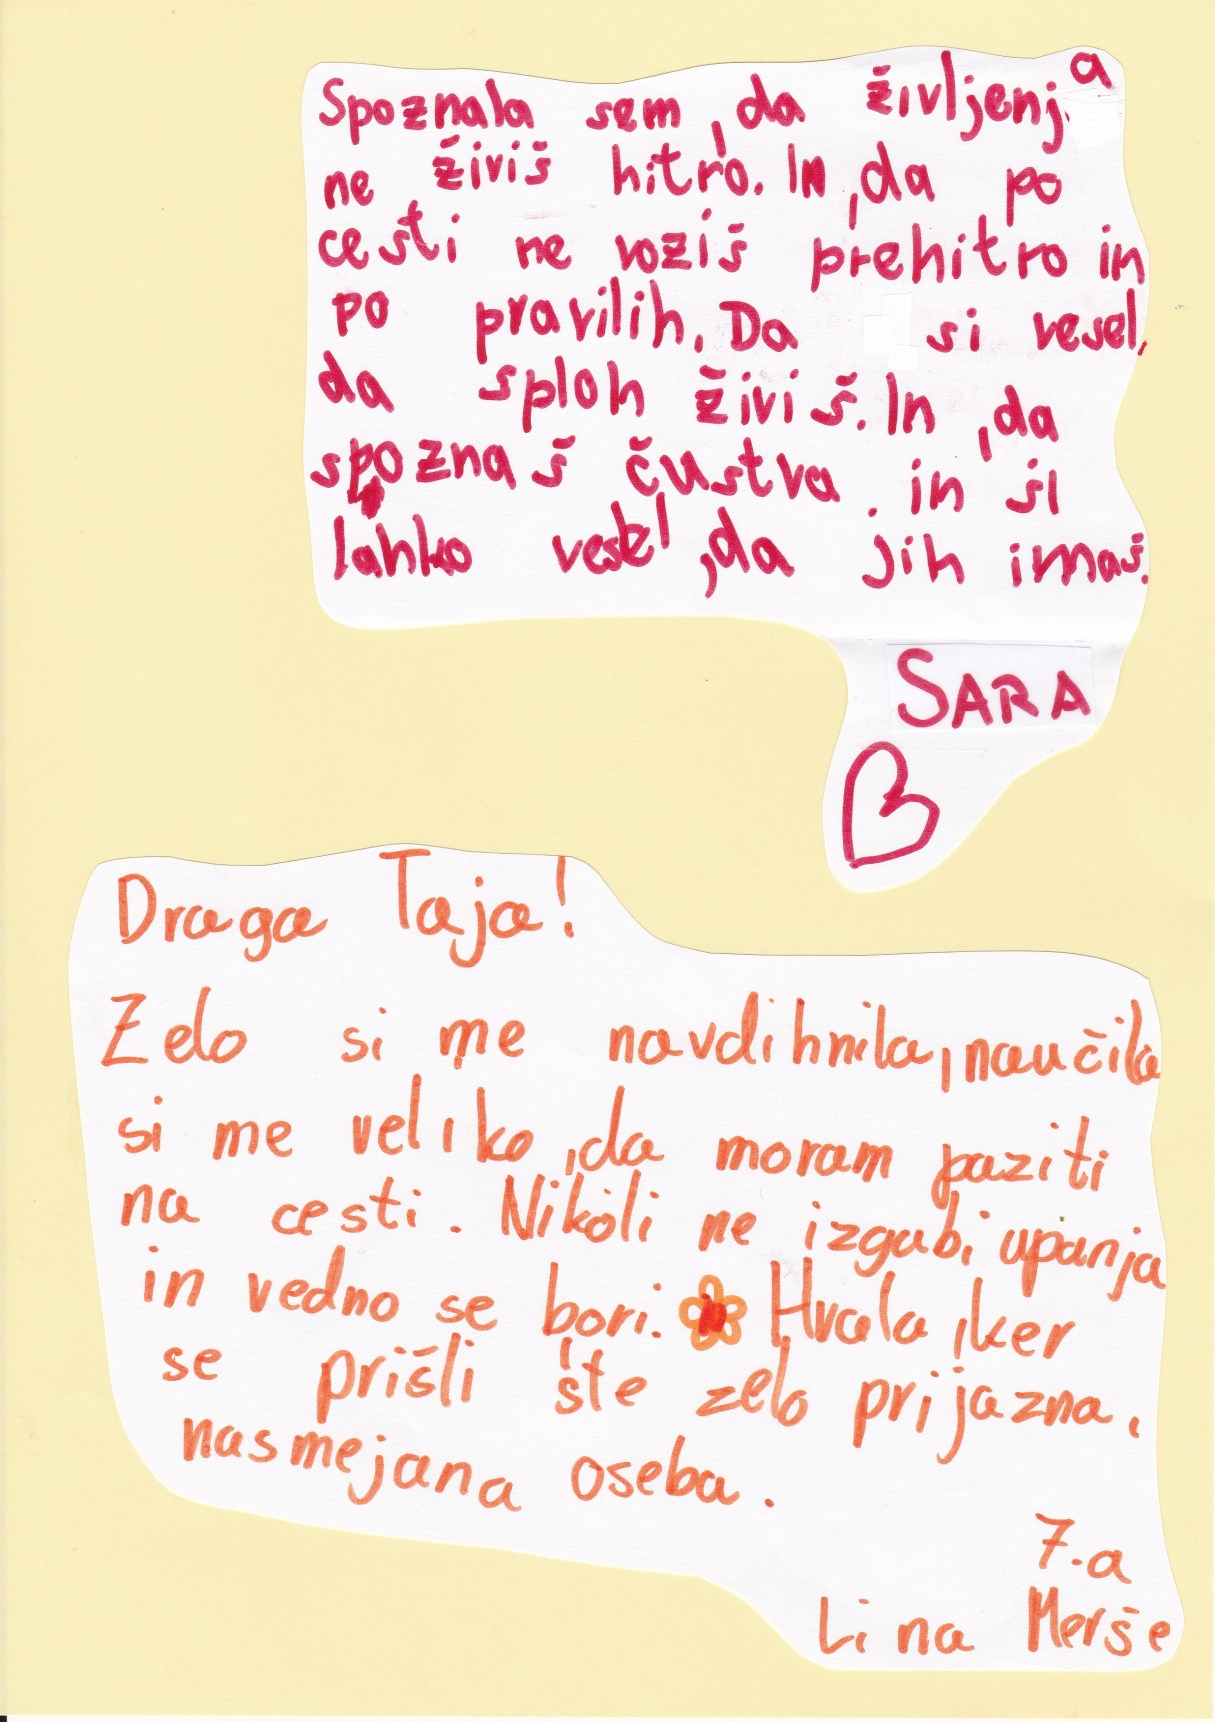 Spoznala sem, da življenja
ne živiš hitro. In ,da po
cesti ne voziš prehitro in
po pravilih. Da si vesel,
da sploh živiš. In ,da
spoznaš čustva. in si
lahko vesel ,da jih imaš.
SARA
Draga Taja!
Zelo si me navdihnila, naučila
si me veliko ,da moram paziti
na cesti. Nikoli ne izgubi upanja
in vedno se bori. Hvala ,ker
se prišli šte zelo prijazna,
nasmejana oseba.
7.a
Lina Merše